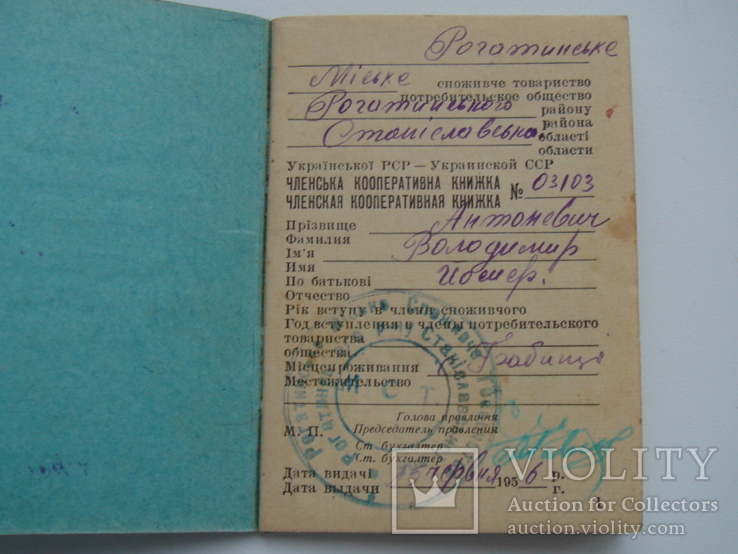 Рогатинське
Міське споживче товариство
потребительское общество
Рогатинського району
района
Станіславської області
области
Української РСР — Украинской ССР
ЧЛЕНСЬКА КООПЕРАТИВНА КНИЖКА
ЧЛЕНСКАЯ КООПЕРАТИВНАЯ КНИЖКА № 03103
Прізвище Антоневич
Фамилия
Ім'я Володимир
Имя
По батькові
Отчество
Рік вступу в члени споживчого
Год вступления в члены потребительского
товариства
общества
Місцепроживання
Местожительство
Голова правління
М. П. Председатель правления
Ст. бухгалтер
Ст. бухгалтер
Дата видачі червня 1956 р.
Дата выдачи г.
М С Т
VIOLITY
Auction for Collectors
auction.violity.com